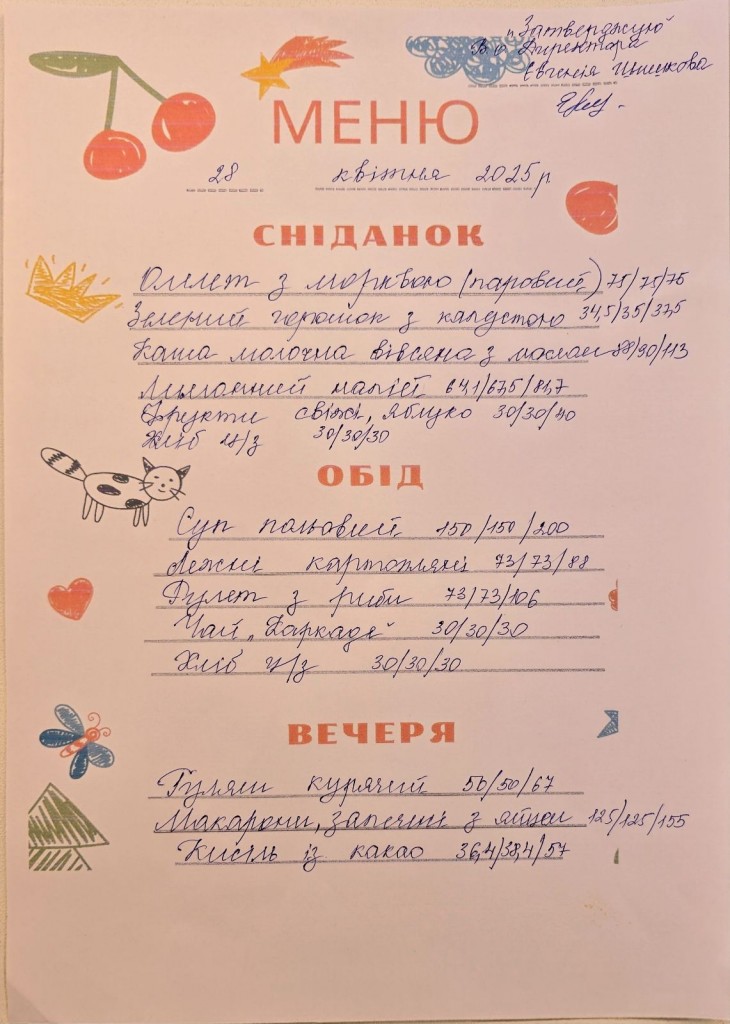 „Затверджую"
В о Директора
Євгенія Шишкова
МЕНЮ
28 квітня 2025р
СНІДАНОК
Омлет з морквою (паровий) 75/75/75
Зелений горошок з капустою 34,5/35/37,5
Каша молочна вівсяна з маслом 88/90/113
напій 64,1/67,5/81,7
Фрукти свіжі, яблуко 30/30/40
Хліб ц/з 30/30/30
ОБІД
Суп польовий 150/150/200
Лежні картопляні 73/73/88
Рулет з риби 73/73/106
Чай „Каркаде" 30/30/30
Хліб ц/з 30/30/30
ВЕЧЕРЯ
Гуляш курячий 50/50/67
Макарони, запечені з яйцем 125/125/155
Кисіль із какао 36,4/38,4/57